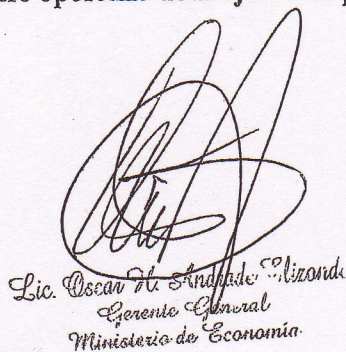 Lic. Oscar H. Andrade Elizond
Gerente General
Ministerio de Economía